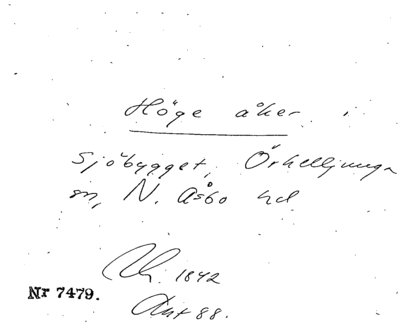 Höge åker i
Sjöbygget, Örkelljunga
sn, N. Åsbo hd
1842
Nr 7479.
Akt 88.